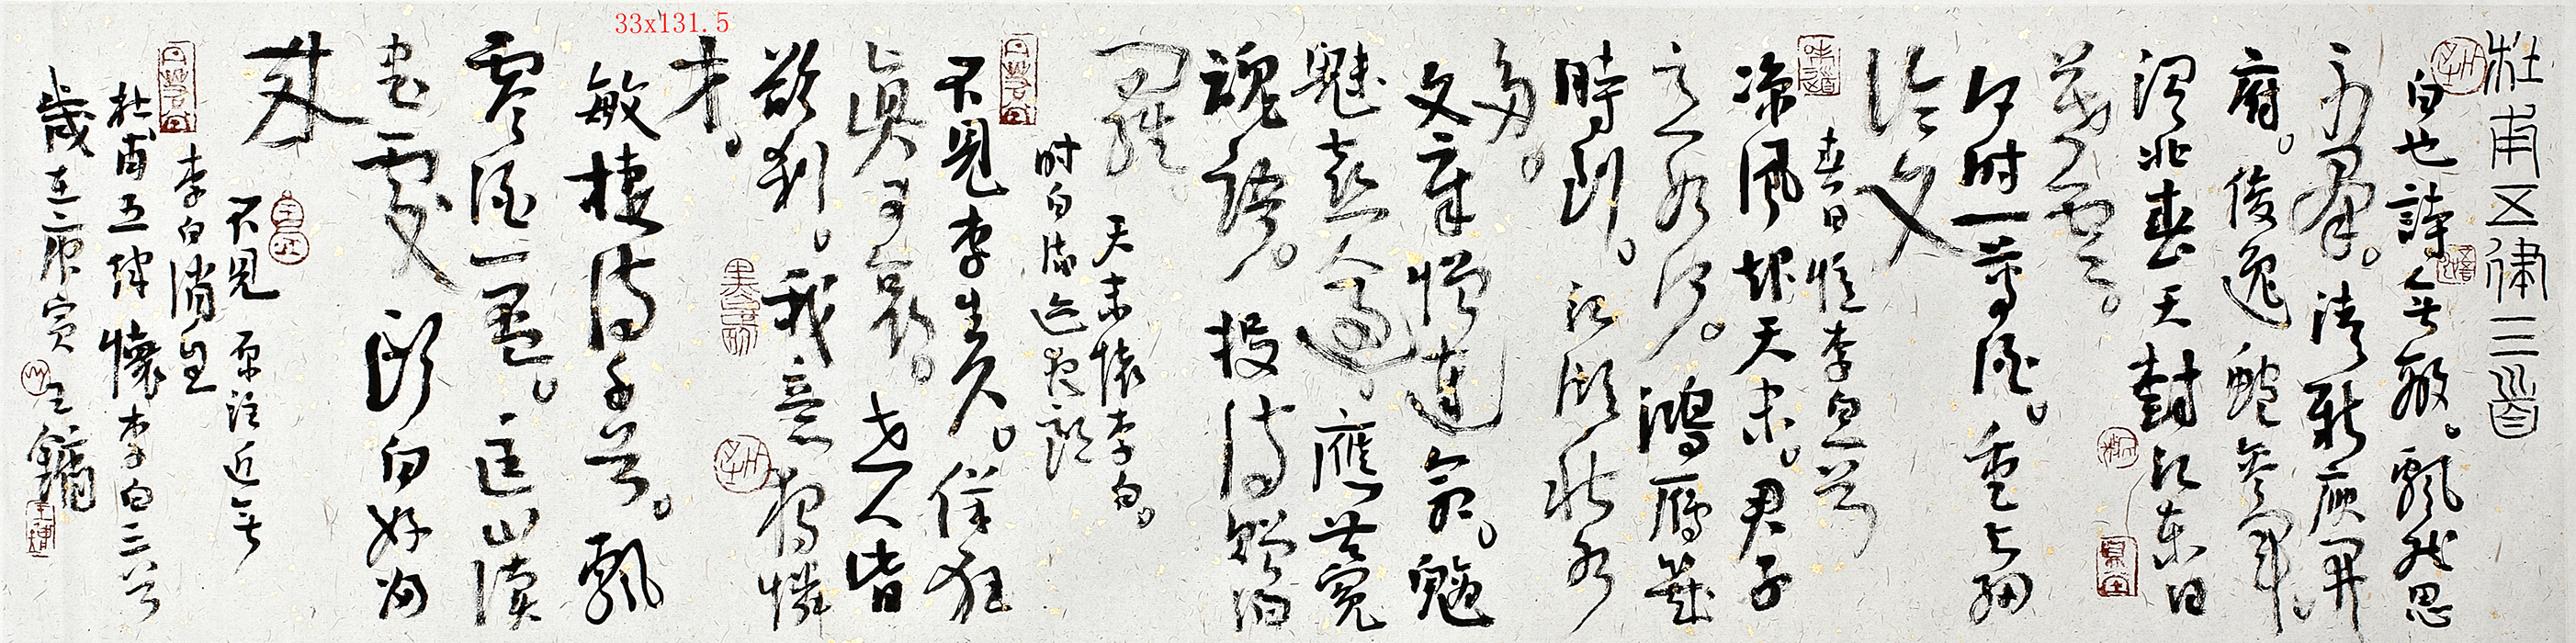 33x131.5
杜甫五律三首
白也詩無敵。飄然思
不群。清新庾開
府。俊逸鮑參軍。
渭北春天樹江東日
暮雲。
何时一尊酒。重与細
论文
春日憶李白一首
凉風起天末。君子
意如何。鴻雁幾
時到。江湖秋水
多。
文章憎達命。魑
魅喜人過。應共冤
魂語。投诗贈汨
羅。
天末懷李白。
时白流近夜郎
不見李生久。佯狂
真可哀。世人皆
欲殺。我意独憐
才。
敏捷诗千首。飄
零酒一盃。匡山读
书處頭白好归
来
不見 原注近無
李白消息
杜甫五律懷李白三首
歲在庚寅 王鏞